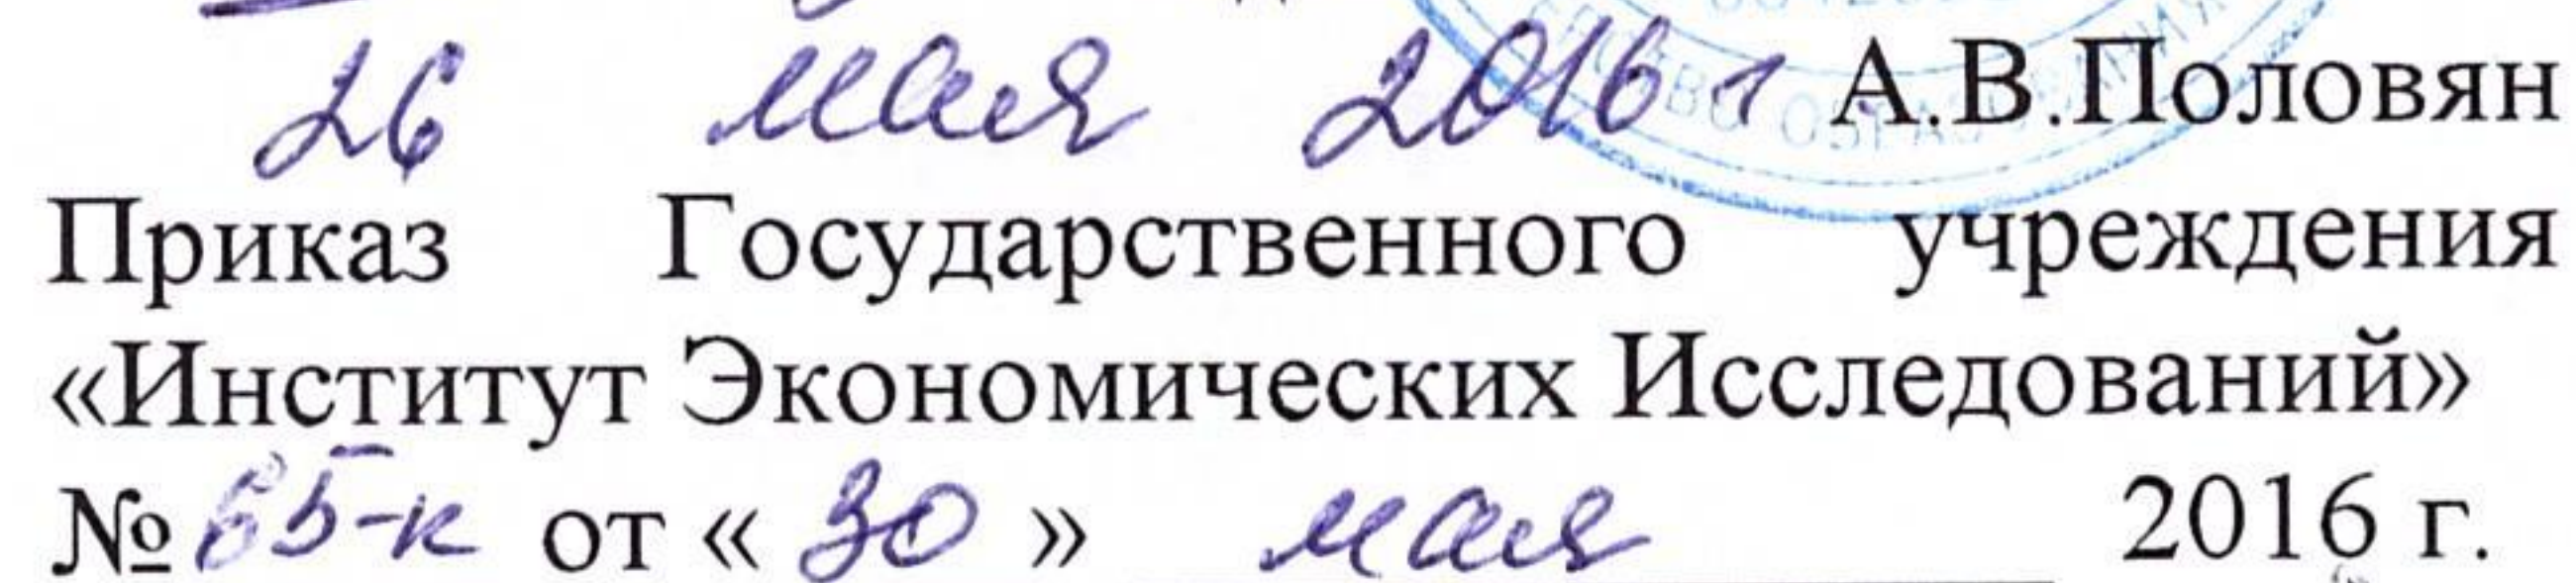 26 мая 2016 г А.В.Половян
Приказ Государственного учреждения
«Институт Экономических Исследований»
№ 65-к от « 30 » мая 2016 г.